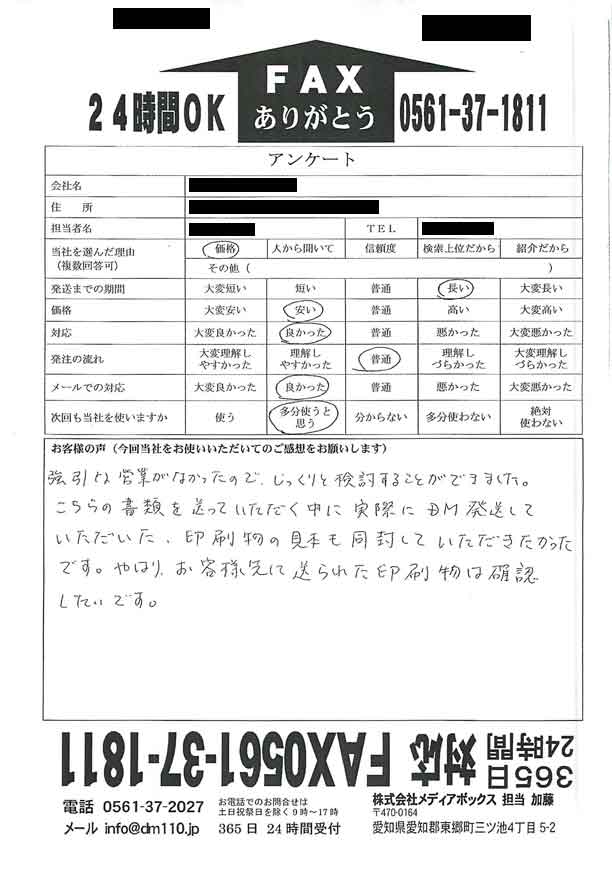 FAX
24時間OK ありがとう 0561-37-1811
アンケート
会社名
住 所
担当者名 TEL
当社を選んだ理由(複数回答可) 価格 人から聞いて 信頼度 検索上位だから 紹介だから
その他( )
発送までの期間 大変短い 短い 普通 長い 大変長い
価格 大変安い 安い 普通 高い 大変高い
対応 大変良かった 良かった 普通 悪かった 大変悪かった
発注の流れ 大変理解しやすかった 理解しやすかった 普通 理解しづらかった 大変理解しづらかった
メールでの対応 大変良かった 良かった 普通 悪かった 大変悪かった
次回も当社を使いますか 使う 多分使うと思う 分からない 多分使わない 絶対使わない
お客様の声(今回当社をお使いいただいてのご感想をお願いします)
強引な営業がなかったので、じっくりと検討することができました。
こちらの書類を送っていただく中に実際にDM発送して
いただいた、印刷物の見本も同封していただきたかった
です。やはり、お客様先に送られた印刷物は確認
したいです。
365日24時間対応 FAX0561-37-1811
電話 0561-37-2027 お電話でのお問合せは土日祝祭日を除く9時〜17時 株式会社メディアボックス 担当 加藤
〒470-0164
メール info@dm110.jp 365日24時間受付 愛知県愛知郡東郷町三ツ池4丁目5-2